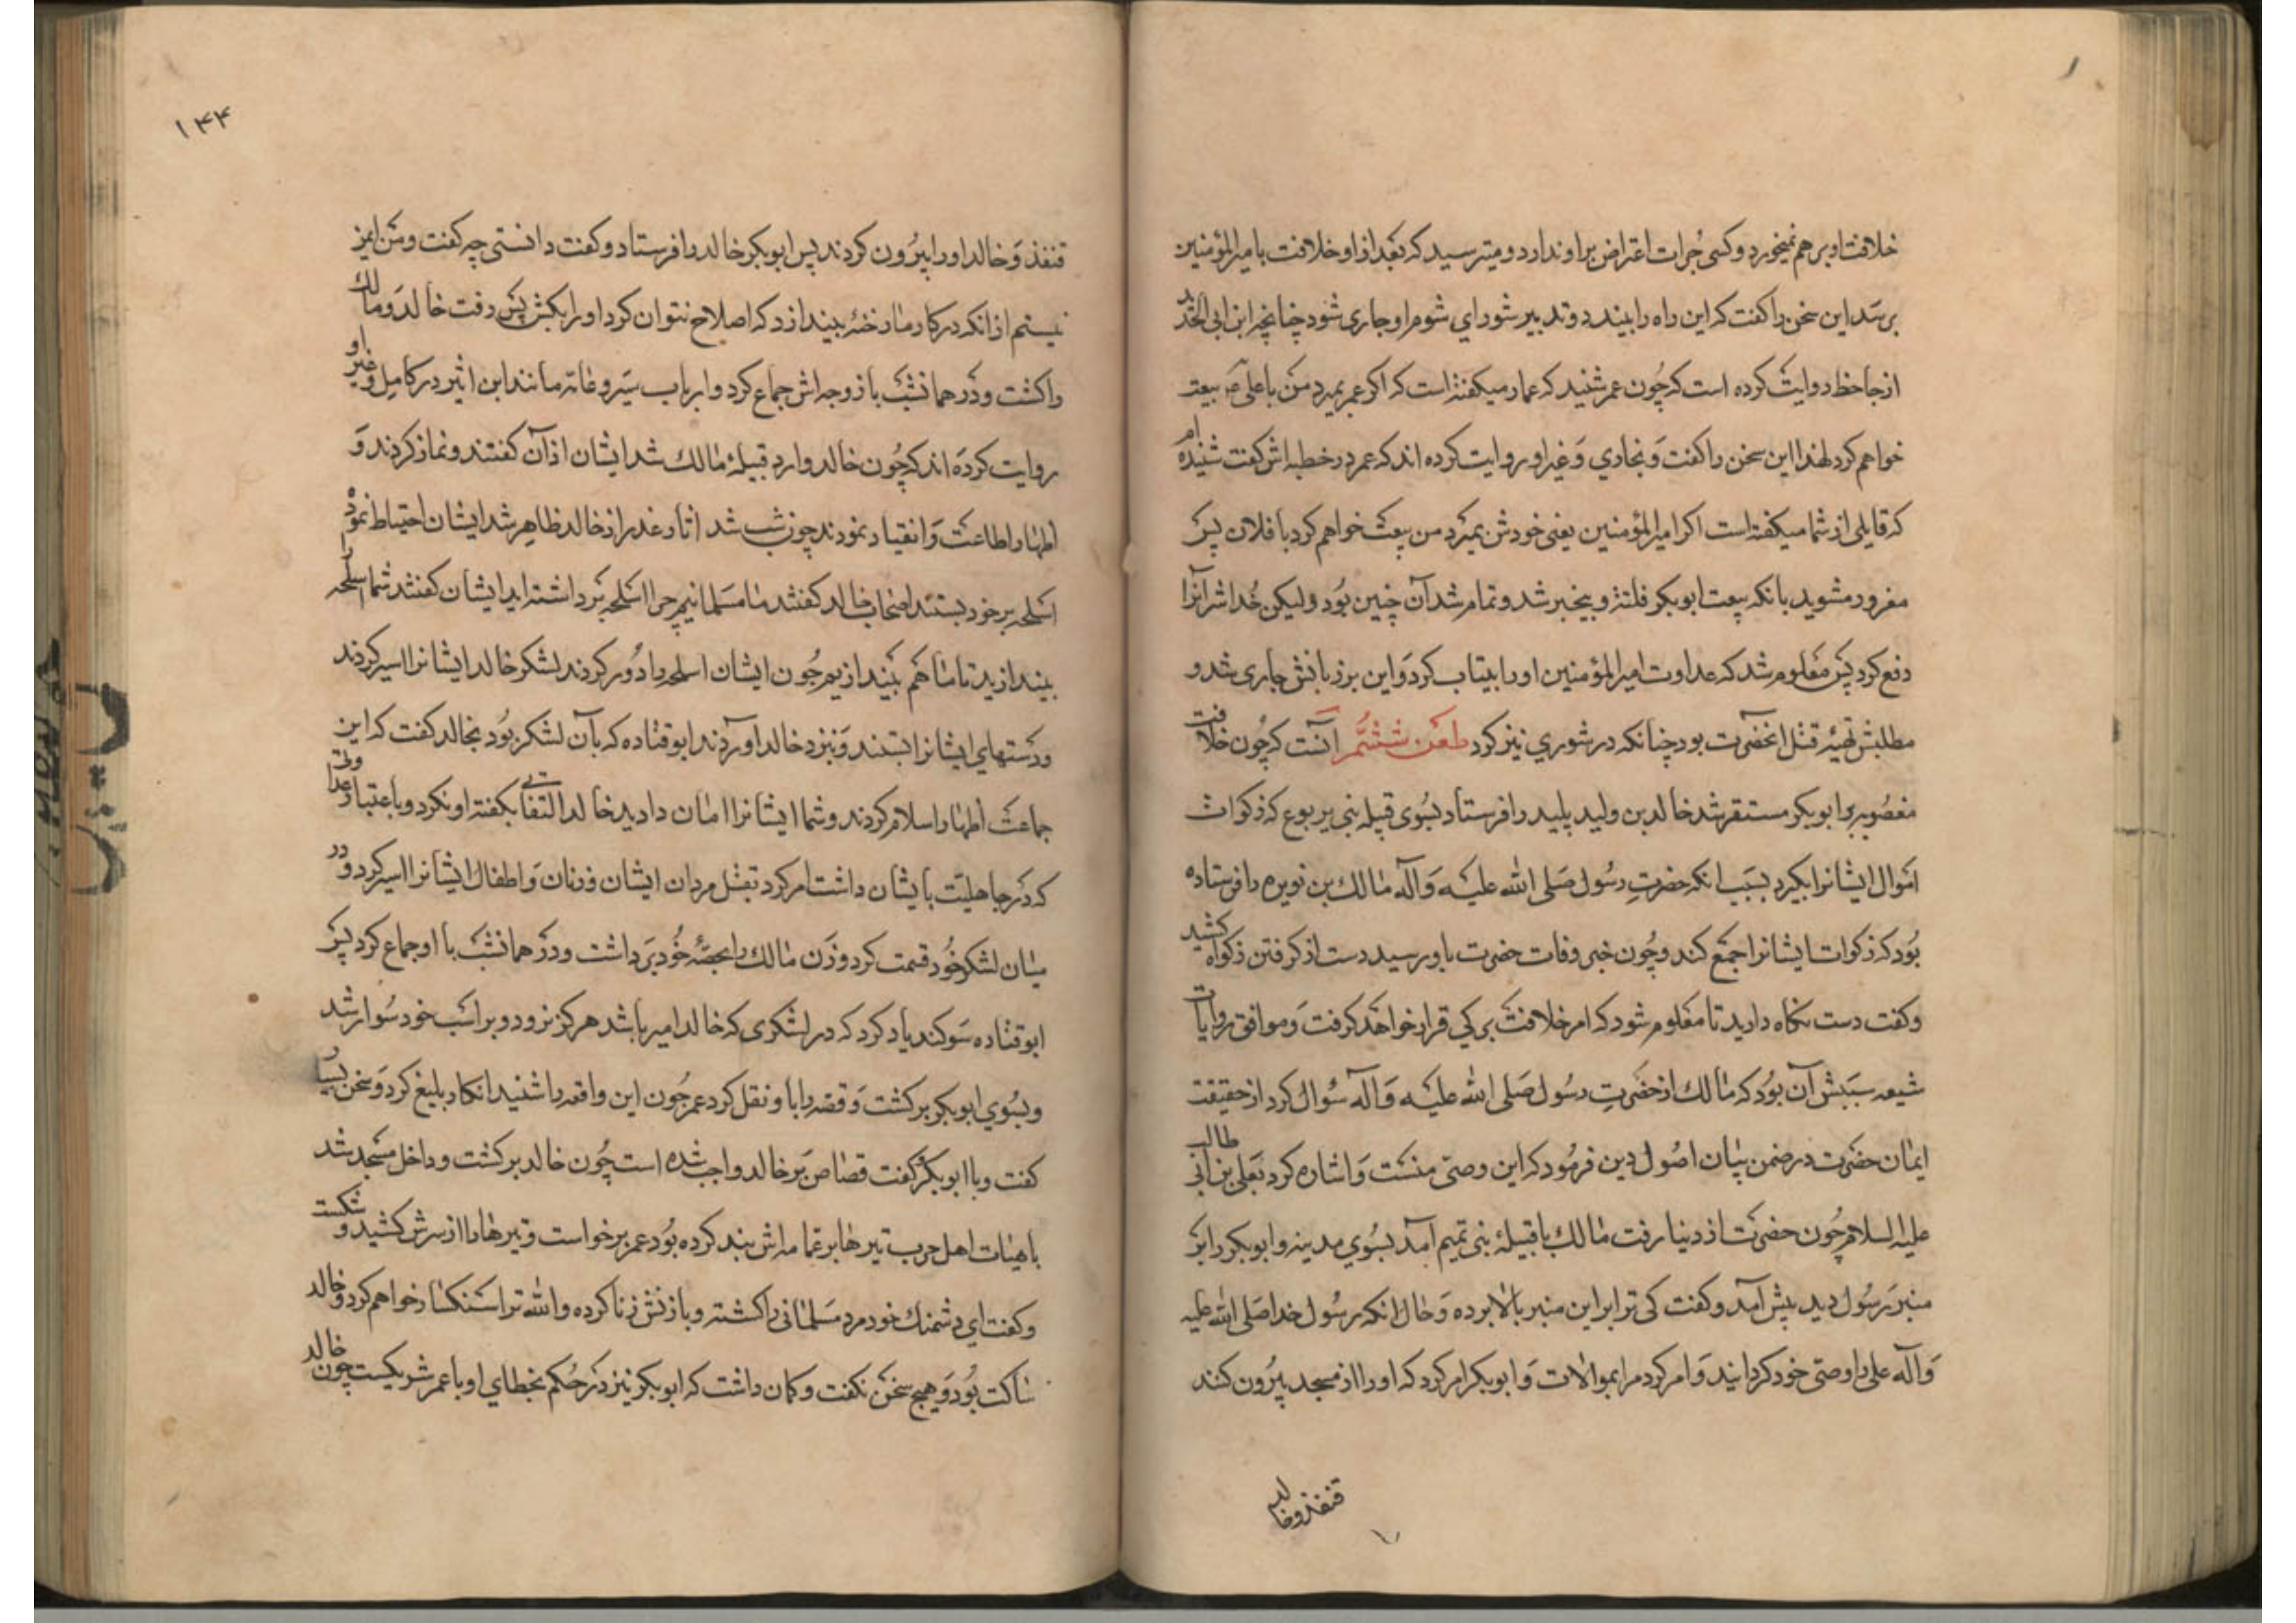 خلافت او بر هم نمیخورد و کسی جُرات اعتراض بر او ندارد و میترسید که بَعد از او خلافت بامیر المؤمنین
برسَد این سخن را کفت که این راه را ببیند دو تدبیر شورای شوم او جاری شود چنانچه ابن ابی الحدید
از جاحظ روایت کرده است که چُون عمر شنید که عمار میکفته است که اکر عمر بمیرد من با علی ع بیعت
خواهم کرد لهذا این سخن را کفت وَ بخاری وَ غیر او روایت کرده اند که عمر در خطبه اش کفت شنیده ام
که قایلی از شما میکفته است اکر امیر المؤمنین یعنی خودش بمیَرد من بیعَت خواهم کرد با فلان پس
مغرور مشوید بانکه بیعت ابوبکر فلتة و بیخبر شد و تمام شد آن چنین بُود ولیکن خُدا شر آنرا
دفع کرد پس مَعلوم شد که عداوت امیر المؤمنین او را بیتاب کرد وَ این بر زبانش جاری شد و
مطلبش تهیّه قتل انحضرَت بود چنانکه در شوری نیز کرد طعن ششم آنست که چُون خلافت
مغصُوبه بر ابوبکر مستقر شد خالد بن ولید پلید را فرستاد بسُوی قبیله بنی یربوع که زکوات
اموال ایشانرا بکیرد بسَبب انکه حضرتِ رسُول صَلی الله علیه وَ آله مالک بن نویره را فرستاده
بُود که زکوات ایشانرا جمَع کند و چُون خبر وفات حضرت باو رسید دست از کرفتن زکواة کشید
و کفت دست نکاه دارید تا مَعلوم شود که امر خلافت بر کی قرار خواهَد کرفت وَ موافق روایات
شیعه سَببش آن بُود که مالک از حضرَتِ رسُول صَلی الله علیَه وَ آله سُوال کرد از حقیقت
ایمان حضرَت در ضمن بیان اصُول دین فرمُود که این وصیّ منست وَ اشاره کرد بَعلی بن ابی طالب
علیه السلام چُون حضرَت از دنیا رفت مالک با قبیلهٔ بنی تمیم آمد بسُوی مدینه و ابوبکر را بر
منبر رَسُول دید پیش آمد و کفت کی ترا بر این منبر بالا برده وَ حال انکه رسُول خدا صَلی الله علیه
وَ آله علی را وصیّ خود کردانید وَ امر کرد مرا بموالات وَ ابوبکر امر کرد که او را از مسجد بیرُون کنند
قنفذ و خالد
۱۴۴
قنفذ وَ خالد او را بیرُون کردند پس ابوبکر خالد را فرستاد و کفت دانستی چه کفت و من ایمن
نیستم از انکه در کار ما رخنهٔ بیندازد که اصلاح نتوان کرد او را بکش پس رفت خالد وَ مالک
را کشت و دَر همانشب با زوجه اش جماع کرد و ارباب سیَر و عامّه مانند ابن اثیر در کامل و غیر او
روایت کردَه اند که چُون خالد وارد قبیلهٔ مالک شد ایشان اذان کفتند و نماز کردند وَ
اظهار اطاعت وَ انقیاد نمودند چون شب شد اثار غدر از خالد ظاهر شد ایشان احتیاط نموده
اسلحه بر خود بستند اصحاب خالد کفتند ما مسَلمانیم چرا اسلحه بَر داشته اید ایشان کفتند شما اسلحه را
بیندازید تا ما هَم بیَندازیم چُون ایشان اسلحه را دُور کردند لشکر خالد ایشانرا اسیر کردند
و دَستهای ایشانرا بستند وَ نزد خالد آوردند ابو قتاده که بآن لشکر بُود بخالد کفت که این
جماعت اظهار اسلام کردند و شما ایشانرا امان دادید خالد التفاتی بکفته او نکرد و باعتبار عداوتی
که دَر جاهلیّت بایشان داشت امر کرد بَقتل مردان ایشان و زنان وَ اطفال ایشانرا اسیر کرد و در
میان لشکر خُود قسمت کرد و زَن مالک را بحصّهٔ خُود بَر داشت و دَر همانشب با او جماع کرد پس
ابو قتاده سَوکند یاد کرد که در لشکری که خالد امیر باشد هرکز نرود و بر اسَب خود سُوار شد
و بسُوی ابوبکر برکشت وَ قصّه را باو نقل کرد عمر چُون این واقعه را شنید انکار بلیغ کرد وَ سخن بسیار
کفت و با ابوبکر کفت قصاص بَر خالد واجب شده است چُون خالد برکشت و داخل مسَجد شد
باهیئات اهل حرب تیرها بر عمامه اش بند کرده بُود عمر برخواست و تیرها را از سَرش کشید و شکست
و کفت ای دشمنک خود مرد مسَلمانی را کشته و با زنش زنا کرده و الله ترا سَنکسار خواهم کرد و خالد
ساکت بُود وَ هیچ سخَن نکفت و کمان داشت که ابوبکر نیز دَر حُکم بخطای او با عمر شریکست چون خالد